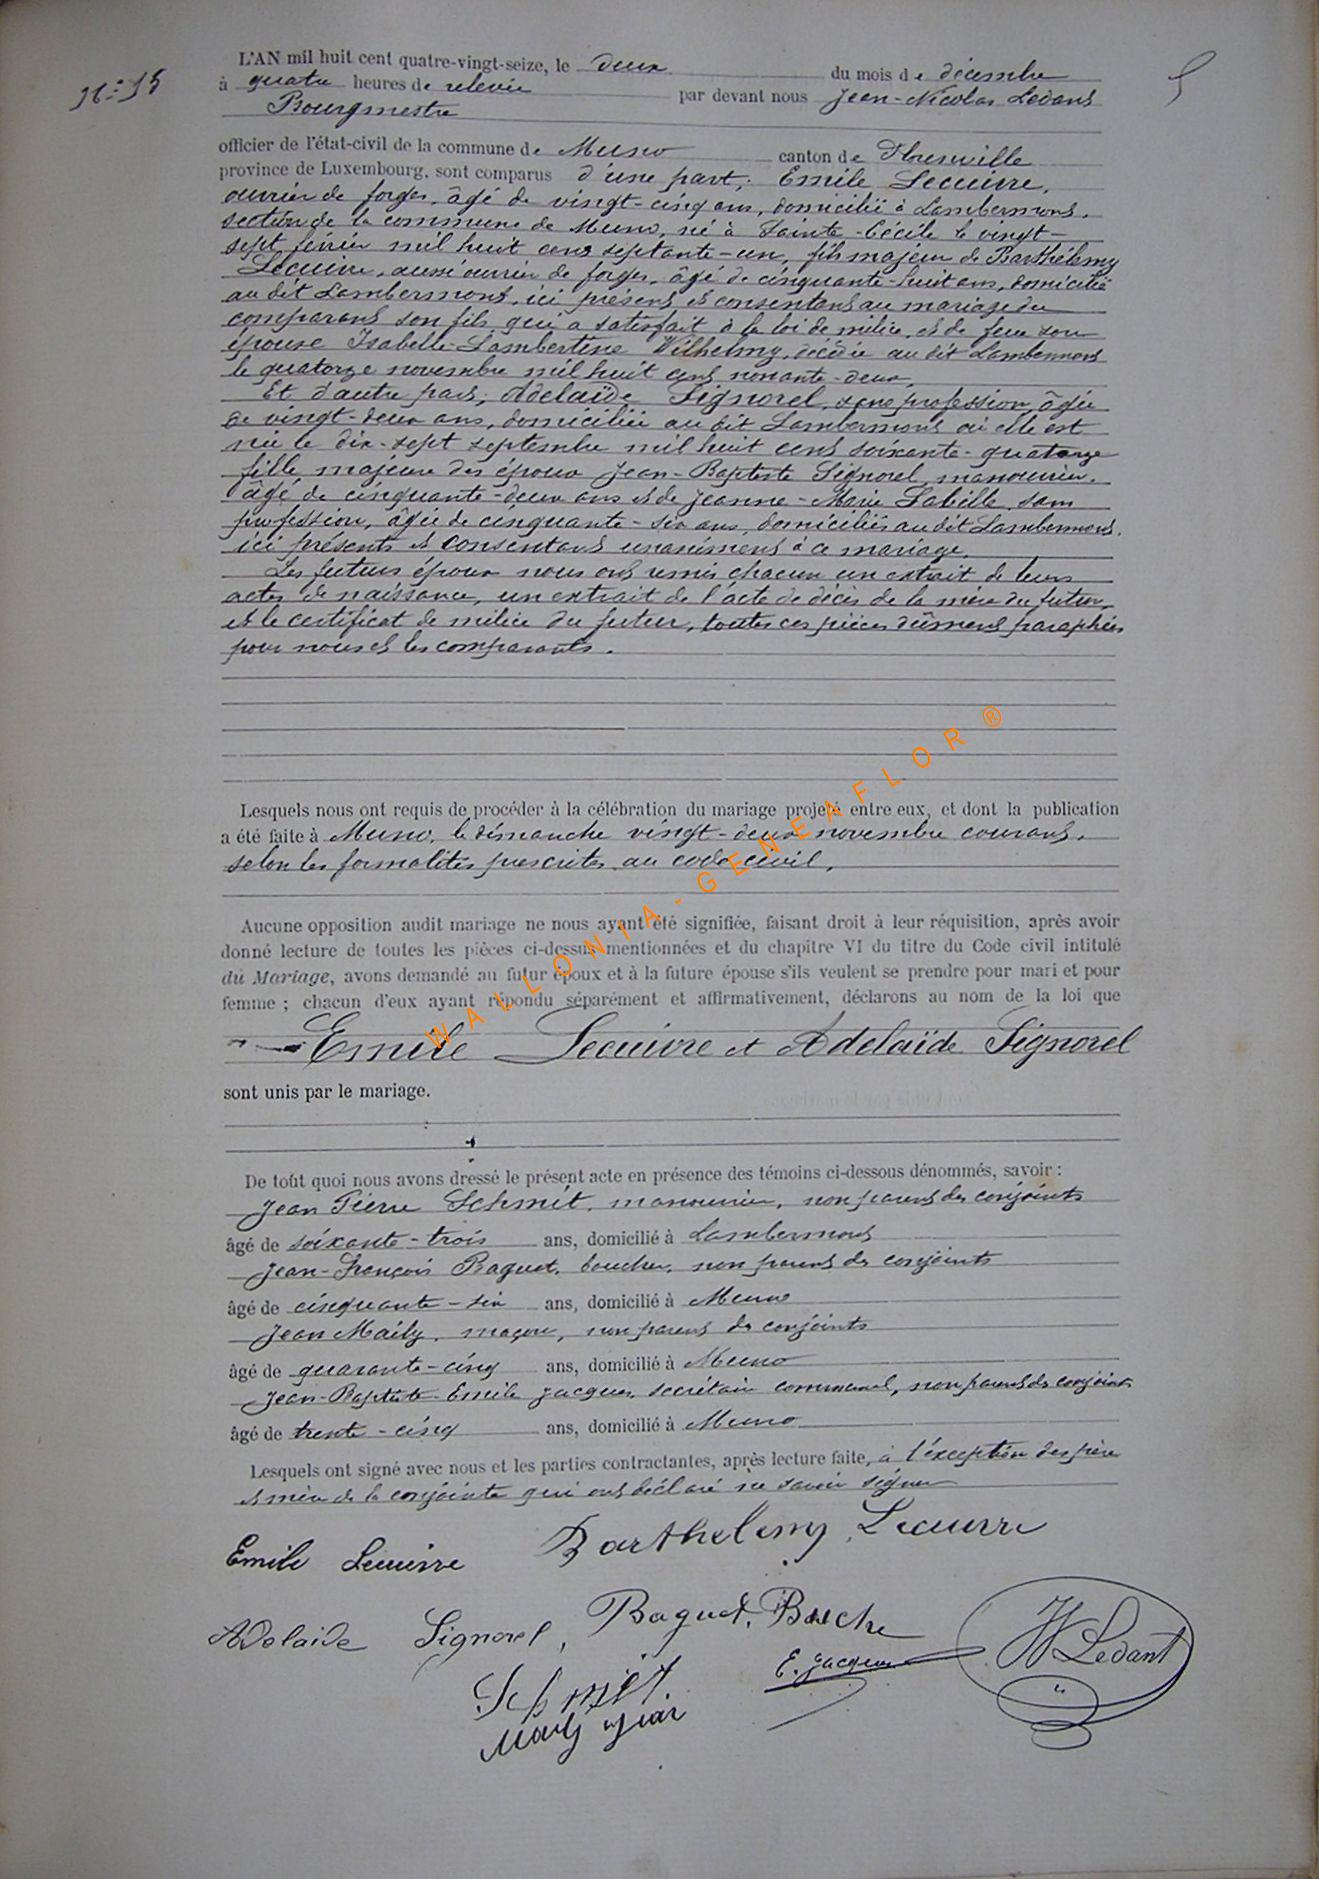 N° 15
L'AN mil huit cent quatre-vingt-seize, le deux du mois de décembre
à quatre heures de relevée par devant nous Jean-Nicolas Ledant
Bourgmestre
officier de l'état-civil de la commune de Muno canton de Florenville
province de Luxembourg, sont comparus d'une part, Emile Lecuivre,
ouvrier de forges, âgé de vingt-cinq ans, domicilié à Lambermont,
section de la commune de Muno, né à Sainte-Cécile le vingt-
sept février mil huit cent septante-un, fils majeur de Barthélemy
Lecuivre, aussi ouvrier de forges, âgé de cinquante-huit ans, domicilié
au dit Lambermont, ici présent et consentant au mariage du
comparant son fils qui a satisfait à la loi de milice, et de feue son
épouse Isabelle-Lambertine Wilhelmy, décédée au dit Lambermont
le quatorze novembre mil huit cent nonante-deux,
Et d'autre part, Adelaïde Signorel, sans profession, âgée
de vingt-deux ans, domiciliée au dit Lambermont où elle est
née le dix-sept septembre mil huit cent soixante-quatorze
fille majeure des époux Jean-Baptiste Signorel, manouvrier,
âgé de cinquante-deux ans et de Jeanne-Marie Labille, sans
profession, âgée de cinquante-six ans, domiciliés au dit Lambermont,
ici présents et consentant unanimement à ce mariage.
Les futurs époux nous ont remis chacun un extrait de leurs
actes de naissance, un extrait de l'acte de décès de la mère du futur,
et le certificat de milice du futur, toutes ces pièces dûment paraphées
par nous et les comparants.
Lesquels nous ont requis de procéder à la célébration du mariage projeté entre eux, et dont la publication
a été faite à Muno, le dimanche vingt-deux novembre courant,
selon les formalités prescrites au code civil,
Aucune opposition audit mariage ne nous ayant été signifiée, faisant droit à leur réquisition, après avoir
donné lecture de toutes les pièces ci-dessus mentionnées et du chapitre VI du titre du Code civil intitulé
du Mariage, avons demandé au futur époux et à la future épouse s'ils veulent se prendre pour mari et pour
femme ; chacun d'eux ayant répondu séparément et affirmativement, déclarons au nom de la loi que
Emile Lecuivre et Adelaïde Signorel
sont unis par le mariage.
De tout quoi nous avons dressé le présent acte en présence des témoins ci-dessous dénommés, savoir :
Jean Pierre Schmit, manouvrier, non parent des conjoints
âgé de soixante-trois ans, domicilié à Lambermont
Jean-François Baquet, boucher, non parent des conjoints
âgé de cinquante-six ans, domicilié à Muno
Jean Maily, maçon, non parent des conjoints
âgé de quarante-cinq ans, domicilié à Muno
Jean-Baptiste-Emile Jacques, secrétaire communal, non parent des conjoints
âgé de trente-cinq ans, domicilié à Muno
Lesquels ont signé avec nous et les parties contractantes, après lecture faite, à l'exception des père
et mère de la conjointe qui ont déclaré ne savoir signer
Emile Lecuivre Barthelemy Lecuivre
Adelaide Signorel, Baquet, Bouche
Schmit E. Jacques Ledant
Maily Jean
WALLONIA-GENEAFLOR ®